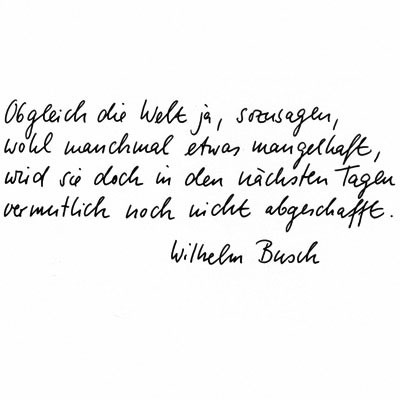 Obgleich die Welt ja, sozusagen,
wohl manchmal etwas mangelhaft,
wird sie doch in den nächsten Tagen
vermutlich noch nicht abgeschafft.
Wilhelm Busch